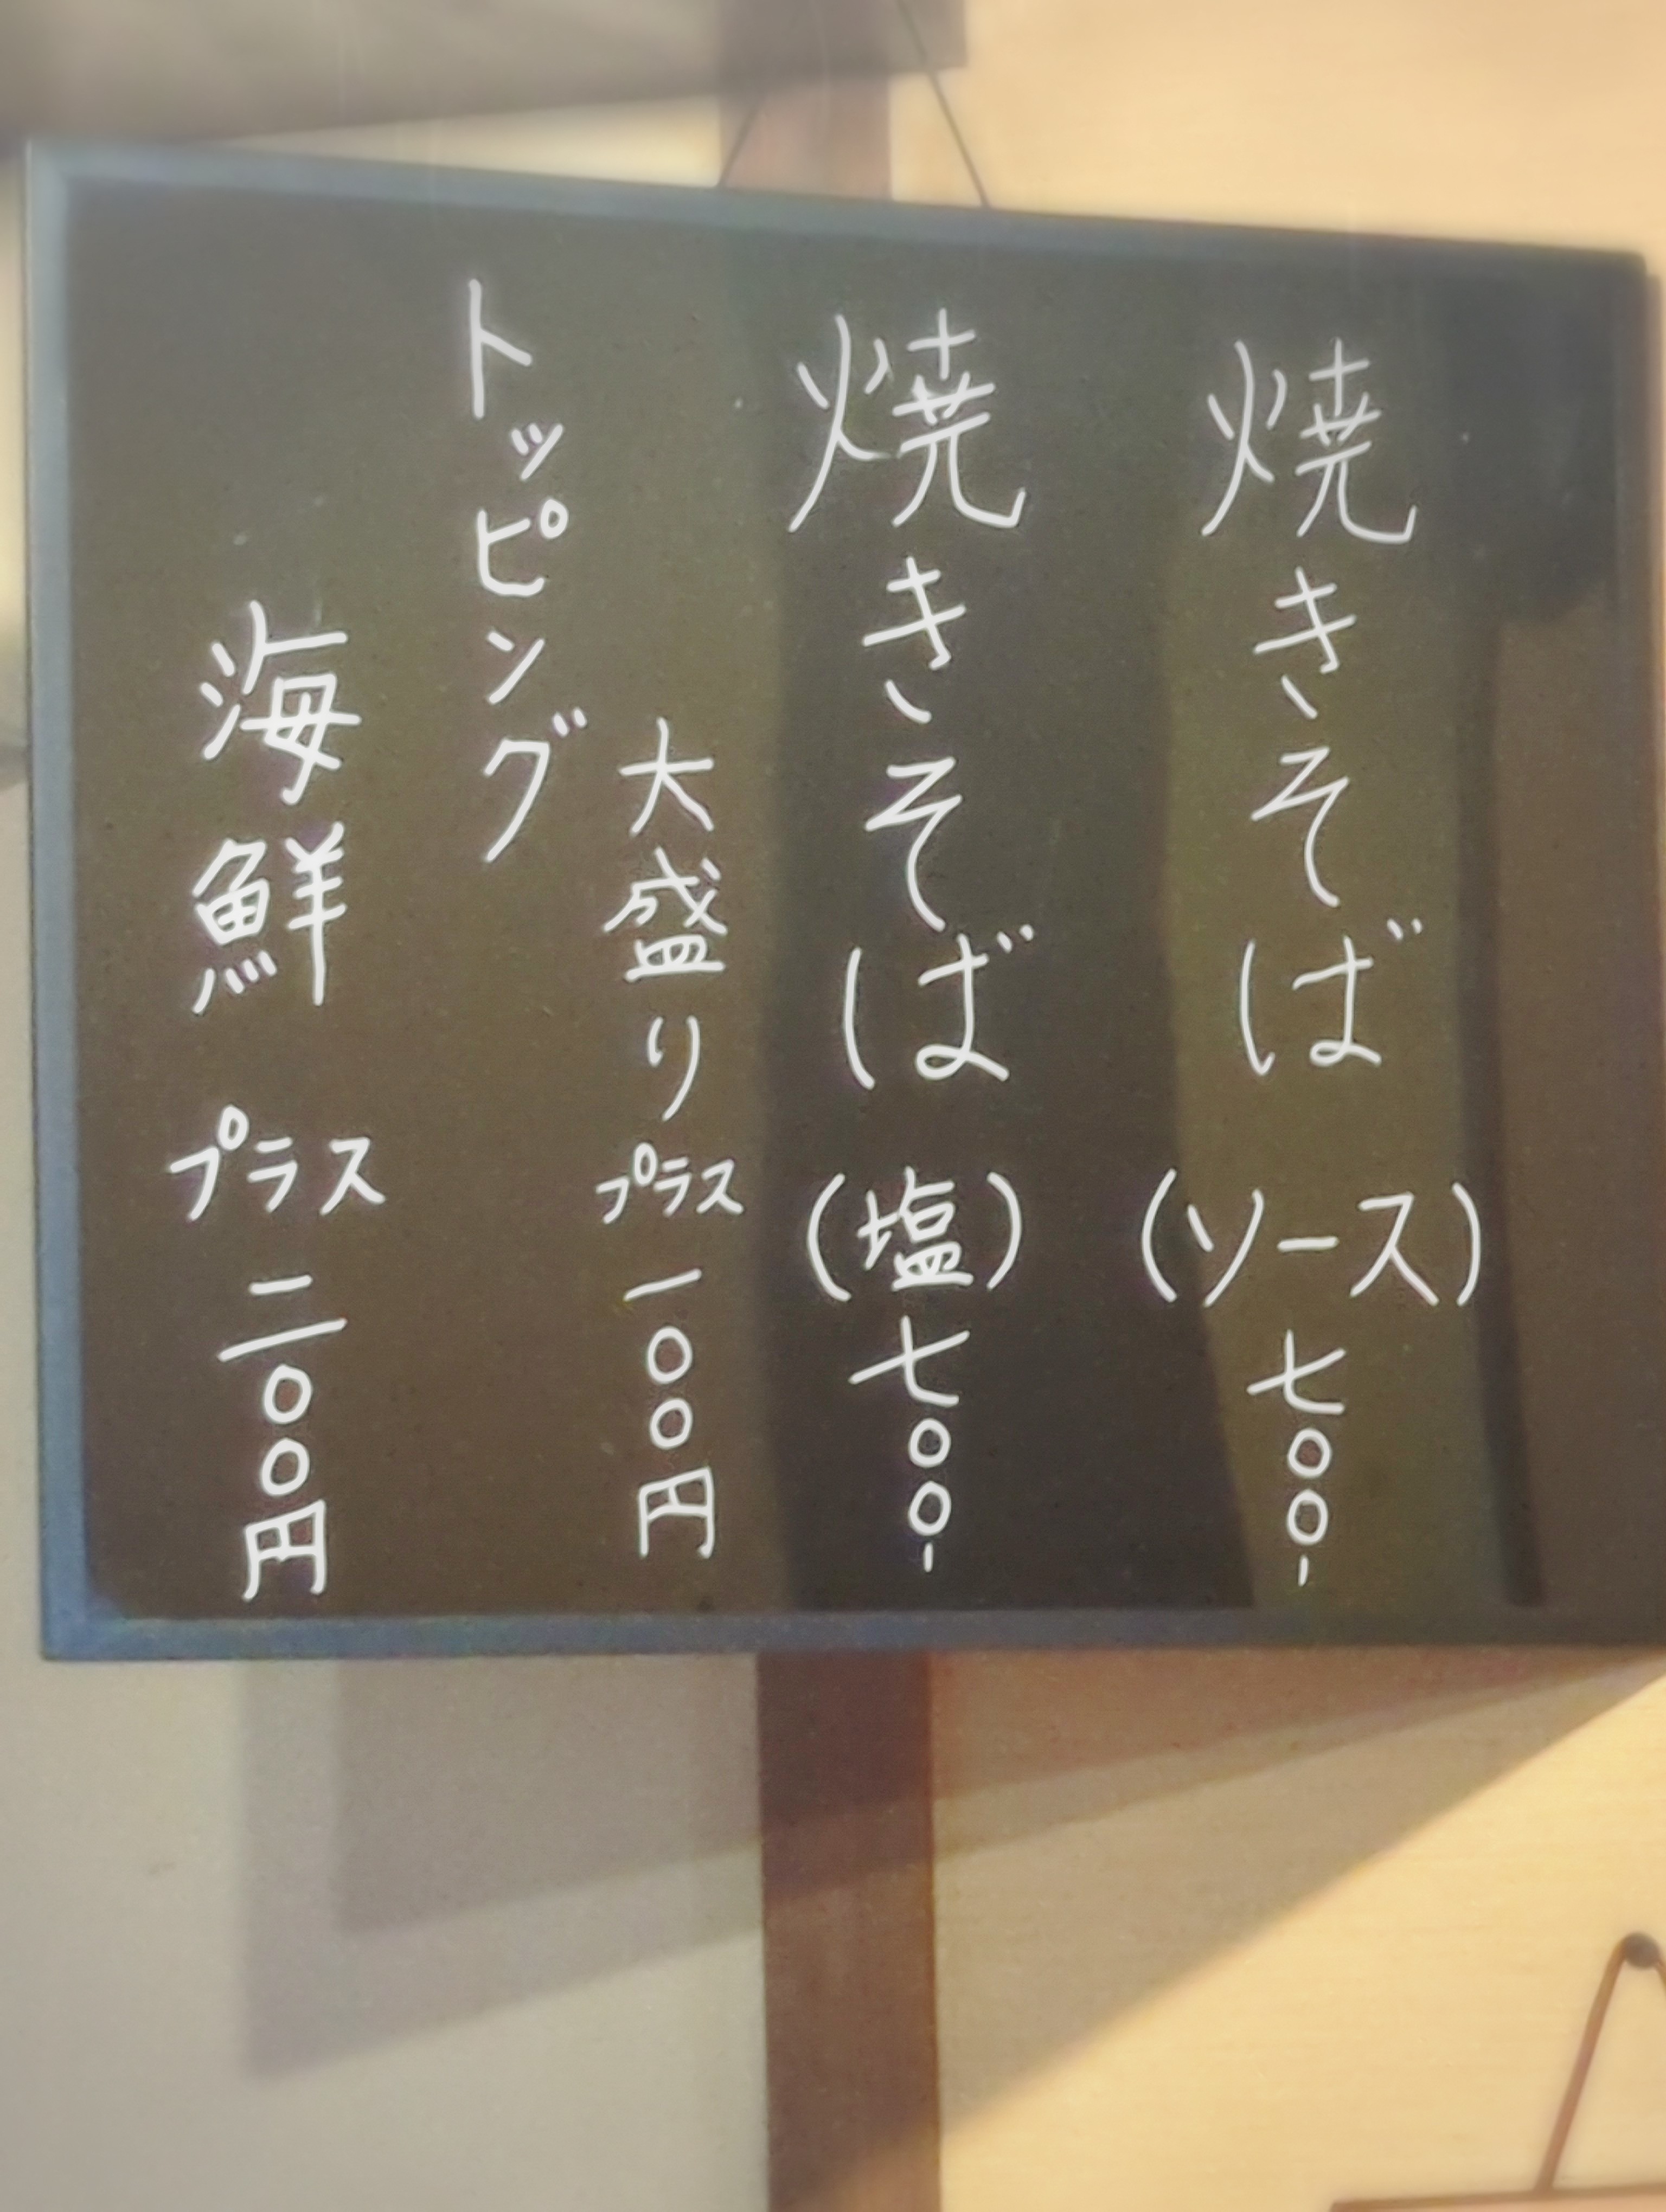 焼きそば (ソース) 七〇〇-
焼きそば (塩) 七〇〇-
大盛り プラス 一〇〇円
トッピング
海鮮 プラス 二〇〇円